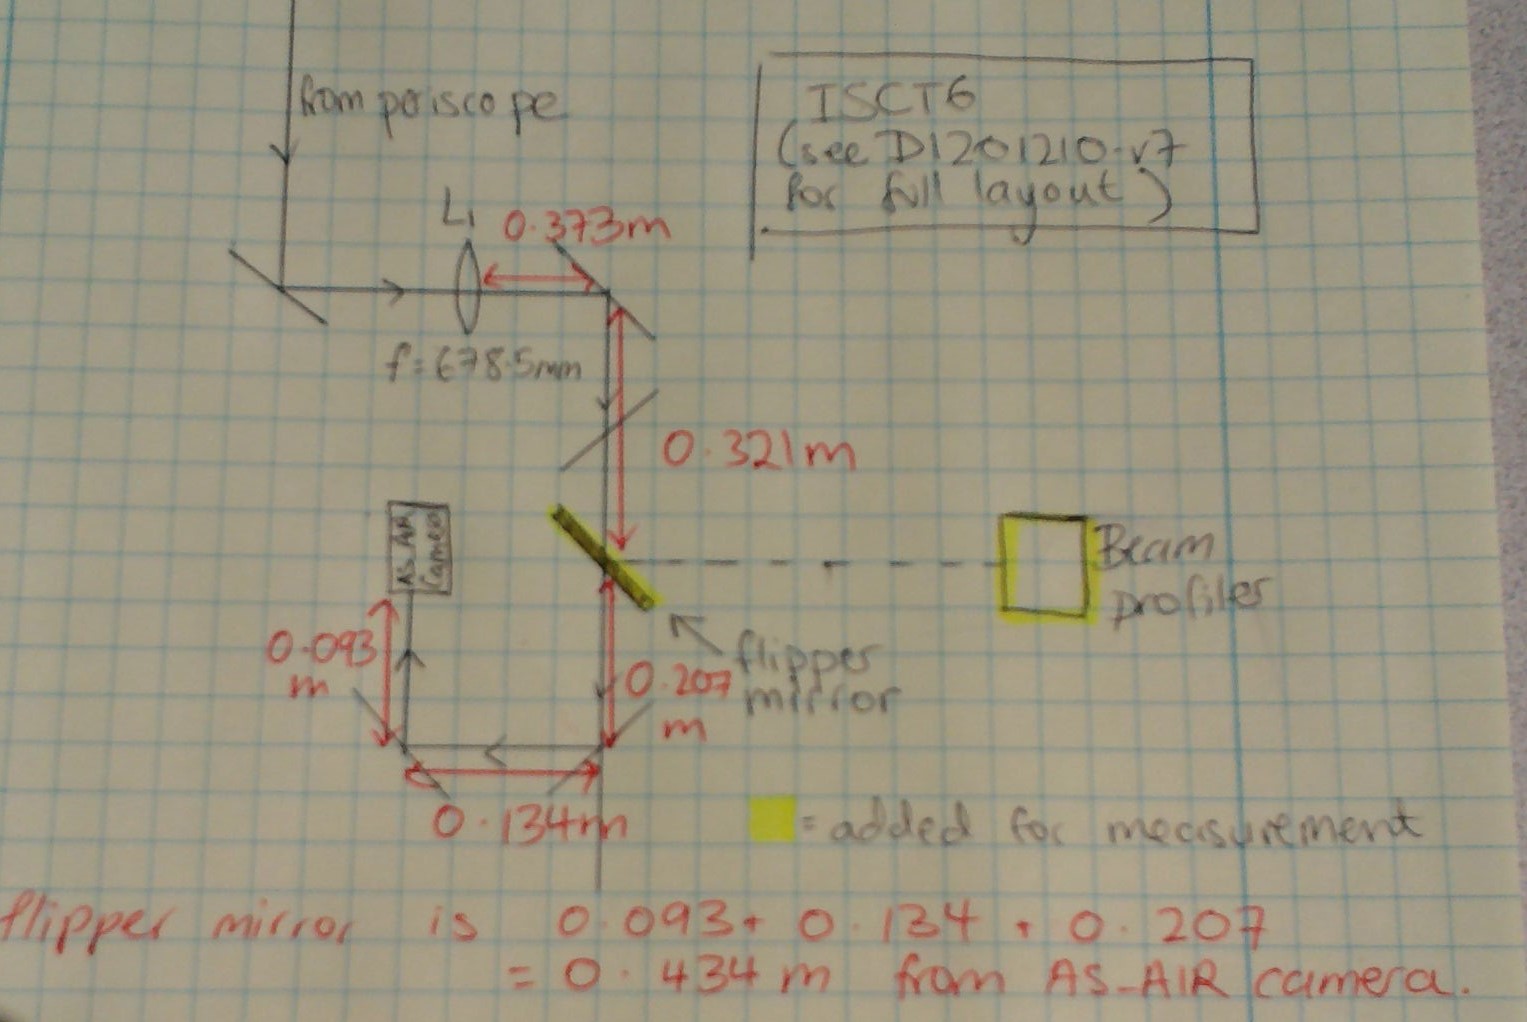 from periscope
ISCT6
(see D1201210-v7
for full layout)
L1
0.373m
f=678.5mm
0.321m
AS_AIR
Camera
Beam
profiler
0.093
m
flipper
mirror
0.207
m
0.134m
= added for measurement
flipper mirror is 0.093+ 0.134 + 0.207
= 0.434 m from AS_AIR camera.